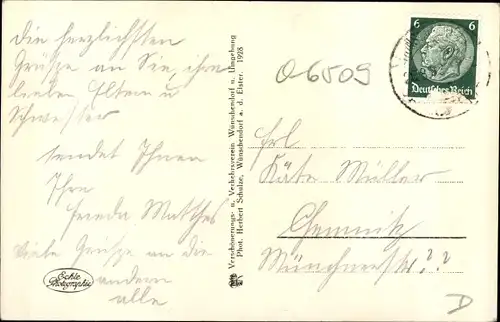 die herzlichsten
Grüße an Sie, ihre
lieben Eltern u
Schwester
sendet Ihnen
Ihre
Frieda Matthes
Viele Grüße an die
andern
alle
Echte
Photographie
Verschönerungs- u. Verkehrsverein Wünschendorf u. Umgebung
Phot. Herbert Schulze, Wünschendorf a. d. Elster. 1928
06509
6 6
Deutsches Reich
Frl
Käte Müller
Chemnitz
Münchnerstr ? ?
D